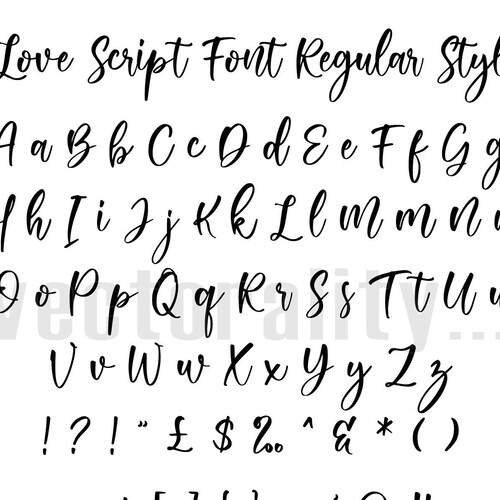 Love Script Font Regular Styl
A a B b C c D d E e F f G g
H h I i J j K k L l M m N n
O o P p Q q R r S s T t U u
vectorality...
V v W w X x Y y Z z
! ? ! " £ $ ‰ ^ & * ( )